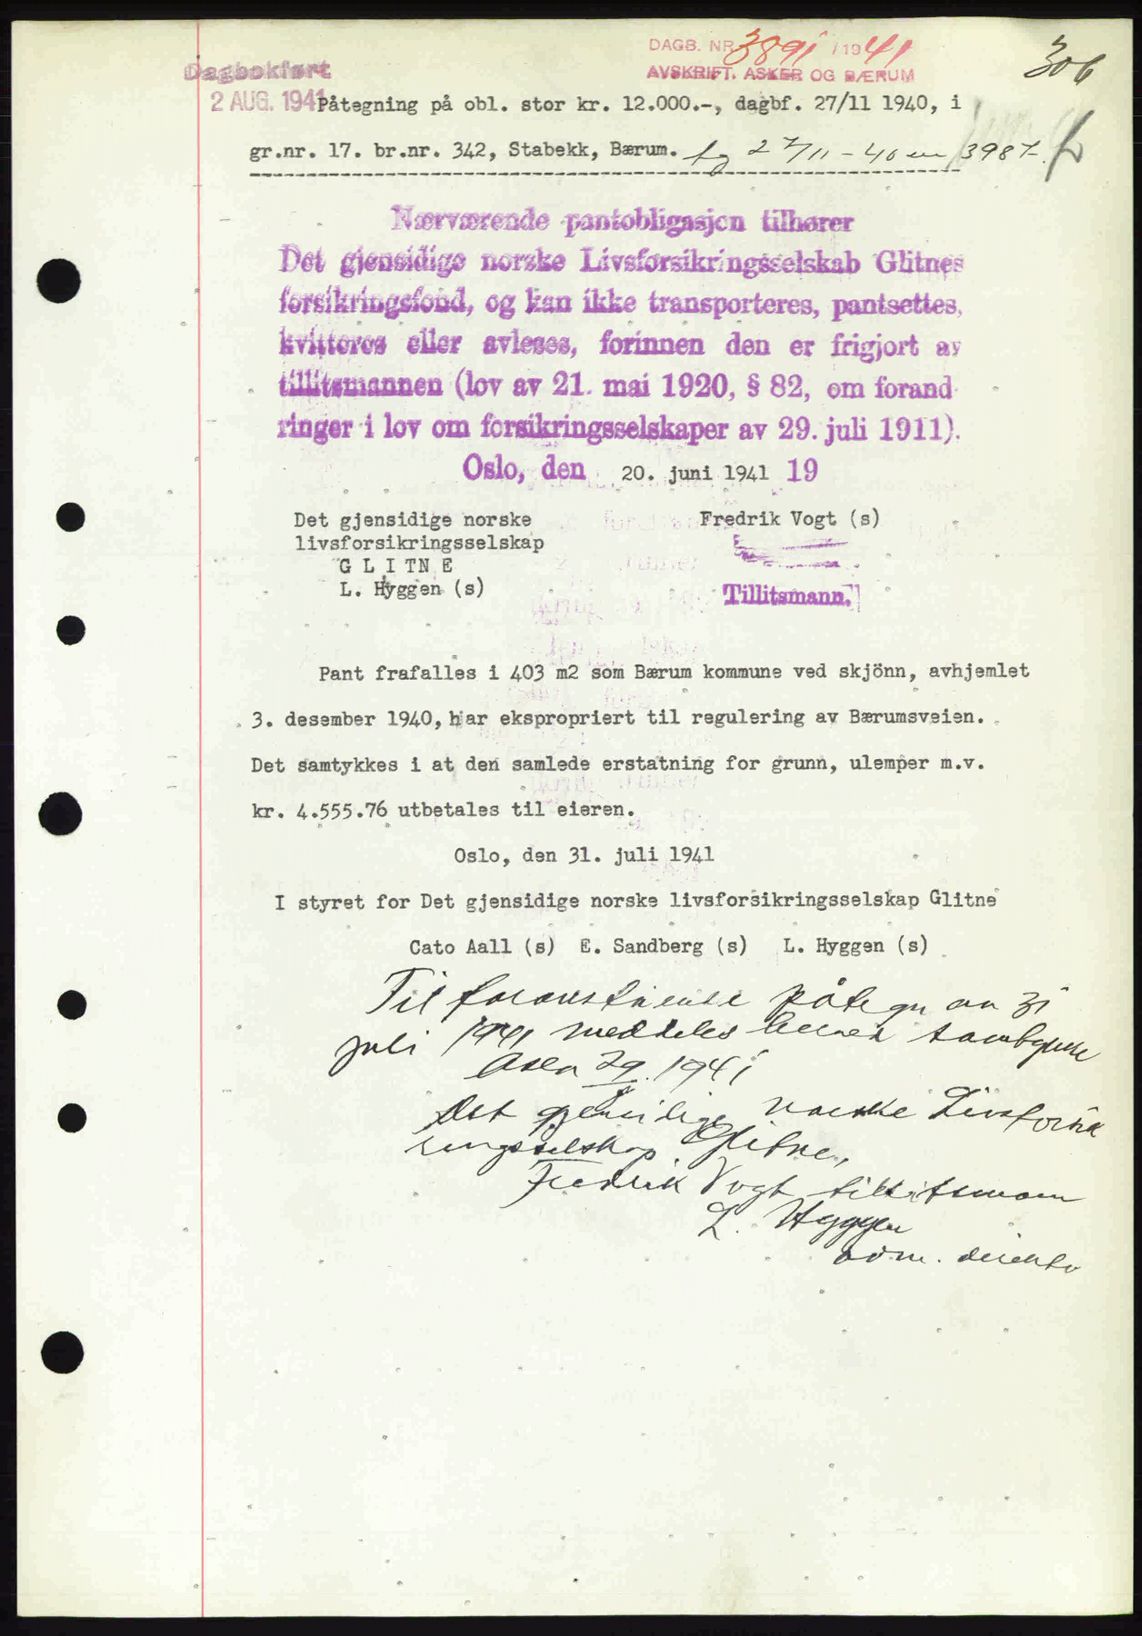 DAGB. NR. 3891 / 1941
AVSKRIFT. ASKER OG BÆRUM
306
Dagbokført
2 AUG. 1941
Påtegning på obl. stor kr. 12.000.-, dagbf. 27/11 1940, i
gr.nr. 17. br.nr. 342, Stabekk, Bærum. 27/11-40 3987
Nærværende pantobligasjon tilhører
Det gjensidige norske Livsforsikringsselskab Glitnes
forsikringsfond, og kan ikke transporteres, pantsettes,
kvitteres eller avleses, forinnen den er frigjort av
tillitsmannen (lov av 21. mai 1920, § 82, om forand
ringer i lov om forsikringsselskaper av 29. juli 1911).
Oslo, den 20. juni 1941 19
Det gjensidige norske
livsforsikringsselskap
G L I T N E
L. Hyggen (s)
Fredrik Vogt (s)
Tillitsmann.
Pant frafalles i 403 m2 som Bærum kommune ved skjönn, avhjemlet
3. desember 1940, har ekspropriert til regulering av Bærumsveien.
Det samtykkes i at den samlede erstatning for grunn, ulemper m.v.
kr. 4.555.76 utbetales til eieren.
Oslo, den 31. juli 1941
I styret for Det gjensidige norske livsforsikringsselskap Glitne
Cato Aall (s) E. Sandberg (s) L. Hyggen (s)
Til foranstående påtegn av 31
juli 1941 meddeles herved samtykke
Oslo 1941
Det gjensidige norske Livsforsik
ringsselskap Glitne,
Fredrik Vogt tillitsmann
L. Hyggen
adm. direktør